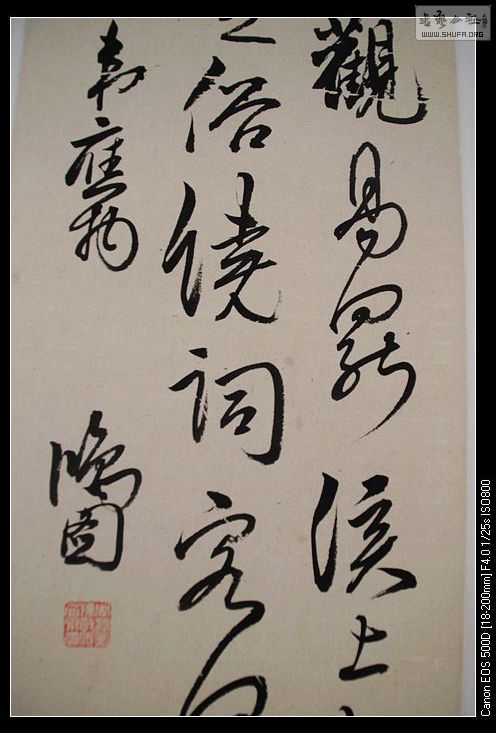 書藝公社
WWW.SHUFA.ORG
觀易罷溪上
俗饒詞客
韋應物
瑞圖
Canon EOS 500D [18-200mm] F4.0 1/25s ISO800